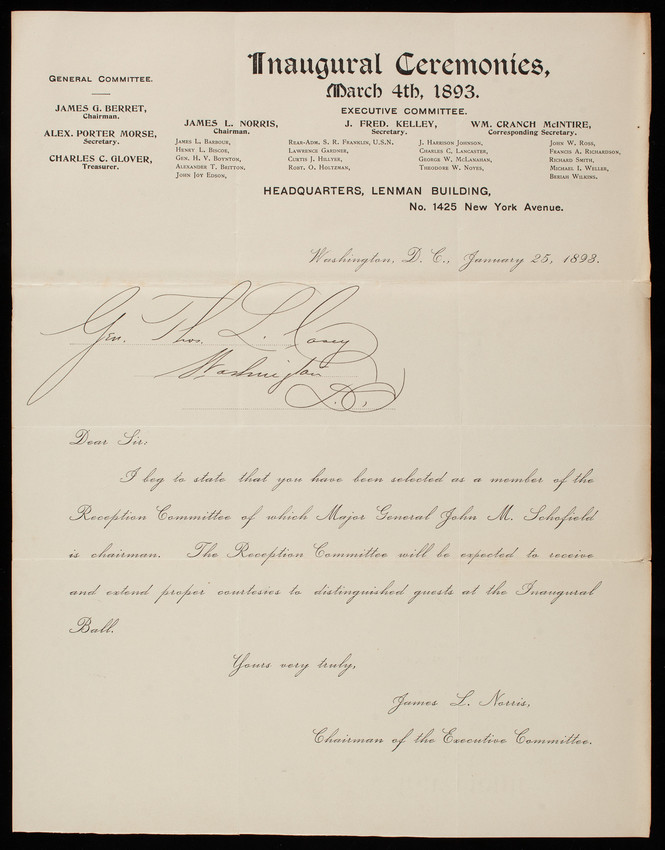 Inaugural Ceremonies,
March 4th, 1893.
GENERAL COMMITTEE.
JAMES G. BERRET,
Chairman.
ALEX. PORTER MORSE,
Secretary.
CHARLES C. GLOVER,
Treasurer.
EXECUTIVE COMMITTEE.
JAMES L. NORRIS,
Chairman.
J. FRED. KELLEY,
Secretary.
WM. CRANCH McINTIRE,
Corresponding Secretary.
JAMES L. BARBOUR,
HENRY L. BISCOE,
GEN. H. V. BOYNTON,
ALEXANDER T. BRITTON,
JOHN JOY EDSON,
REAR-ADM. S. R. FRANKLIN, U.S.N,
LAWRENCE GARDNER,
CURTIS J. HILLYER,
ROBT. O. HOLTZMAN,
J. HARRISON JOHNSON,
CHARLES C. LANCASTER,
GEORGE W. McLANAHAN,
THEODORE W. NOYES,
JOHN W. ROSS,
FRANCIS A. RICHARDSON,
RICHARD SMITH,
MICHAEL I. WELLER,
BERIAH WILKINS.
HEADQUARTERS, LENMAN BUILDING,
No. 1425 New York Avenue.
Washington, D. C., January 25, 1893.
Gen. Thos. L. Casey
Washington
D.C.
Dear Sir:
I beg to state that you have been selected as a member of the
Reception Committee of which Major General John M. Schofield
is chairman. The Reception Committee will be expected to receive
and extend proper courtesies to distinguished guests at the Inaugural
Ball.
Yours very truly,
James L. Norris,
Chairman of the Executive Committee.